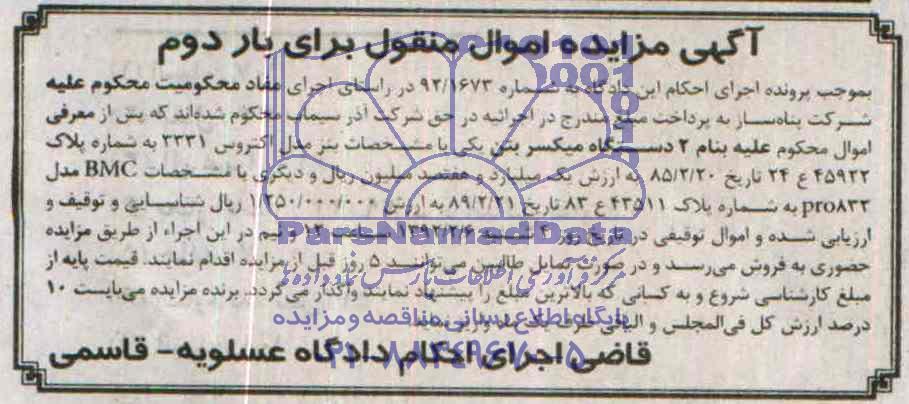 آگهی مزایده اموال منقول برای بار دوم
بموجب پرونده اجرای احکام این دادگاه به شماره ۹۲/۱۶۷۳ در راستای اجرای مفاد محکومیت محکوم علیه
شرکت پناه‌ساز به پرداخت مبلغ مندرج در اجرائیه در حق شرکت آذر سیماب محکوم شده‌اند که پس از معرفی
اموال محکوم علیه بنام ۲ دستگاه میکسر بتن یکی با مشخصات بنز مدل اکتروس ۳۳۳۱ به شماره پلاک
۴۵۹۲۲ ع ۲۴ تاریخ ۸۵/۲/۲۰ به ارزش یک میلیارد و هفتصد میلیون ریال و دیگری با مشخصات BMC مدل
pro۸۳۲ به شماره پلاک ۴۳۵۱۱ ع ۸۳ تاریخ ۸۹/۲/۲۱ به ارزش ۱/۲۵۰/۰۰۰/۰۰۰ ریال شناسایی و توقیف و
ارزیابی شده و اموال توقیفی در تاریخ روز ۴ شنبه ۱۳۹۲/۲/۶ ساعت ۱۲ و نیم در این اجراء از طریق مزایده
حضوری به فروش می‌رسد و در صورت تمایل طالبین می‌توانند ۵ روز قبل از مزایده اقدام نمایند. قیمت پایه از
مبلغ کارشناسی شروع و به کسانی که بالاترین مبلغ را پیشنهاد نمایند واگذار می‌گردد. برنده مزایده می‌بایست ۱۰
درصد ارزش کل فی‌المجلس و الباقی ظرف یک ماه واریز نماید.
قاضی اجرای احکام دادگاه عسلویه- قاسمی
ParsNamadData
مرکز فرآوری اطلاعات پارس نماد داده ها
پایگاه اطلاع رسانی مناقصه و مزایده